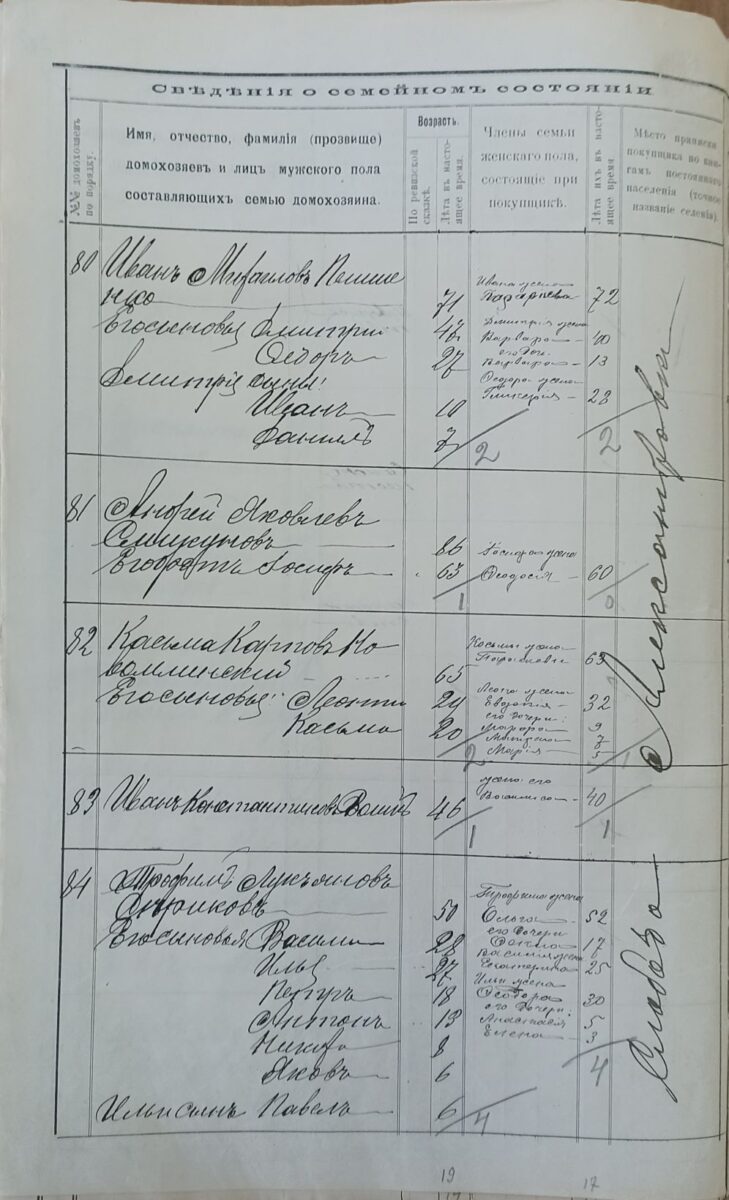 Свѣдѣнія о семейномъ состояніи
№№ домохозяевъ по порядку.
Имя, отчество, фамилія (прозвище)
домохозяевъ и лицъ мужского пола
составляющихъ семью домохозяина.
Возрастъ.
По ревизской сказкѣ.
Лѣта въ настоящее время.
Члены семьи
женскаго пола,
состоящіе при
покупщикѣ.
Лѣта ихъ въ настоящее время.
Мѣсто приписки
покупщика по книгамъ постояннаго
населенія (точное
названіе селенія).
80 Иванъ Михаиловъ
71 Ивана жена 72
Его сыновья Дмитрій 42 Дмитрія жена
Варвара 40
Ѳедоръ 27 его дочь
Варвара 13
Дмитрія сыны: Ѳедора жена
Иванъ 10 Гликерія 28
Данилъ 7
2 2
81 Андрей Яковлевъ
86 жена
Его братъ 63 Ѳеодосія 60
1
82 Касьма Карповъ
65 жена 63
Его сыновья: Леонтій 24 жена
Евдокія 32
Касьма 20 его дочери:
9
7
Марія 5
2 1
83 Иванъ Константиновъ 46 жена его
Василиса 40
1 1
84 Трофимъ Лукьяновъ
50 Трофима жена
Ольга 52
Его сыновья Василій 28 его дочери
17
Илья 27 Василія жена
Екатерина 25
Петръ 18 Ильи жена
Ѳеодора 30
Антонъ 13 его дочери:
Анастасія 5
8 Елена 3
Яковъ 6
4
Ильи сынъ Павелъ 6
4
Александровка
Слобода
19 17